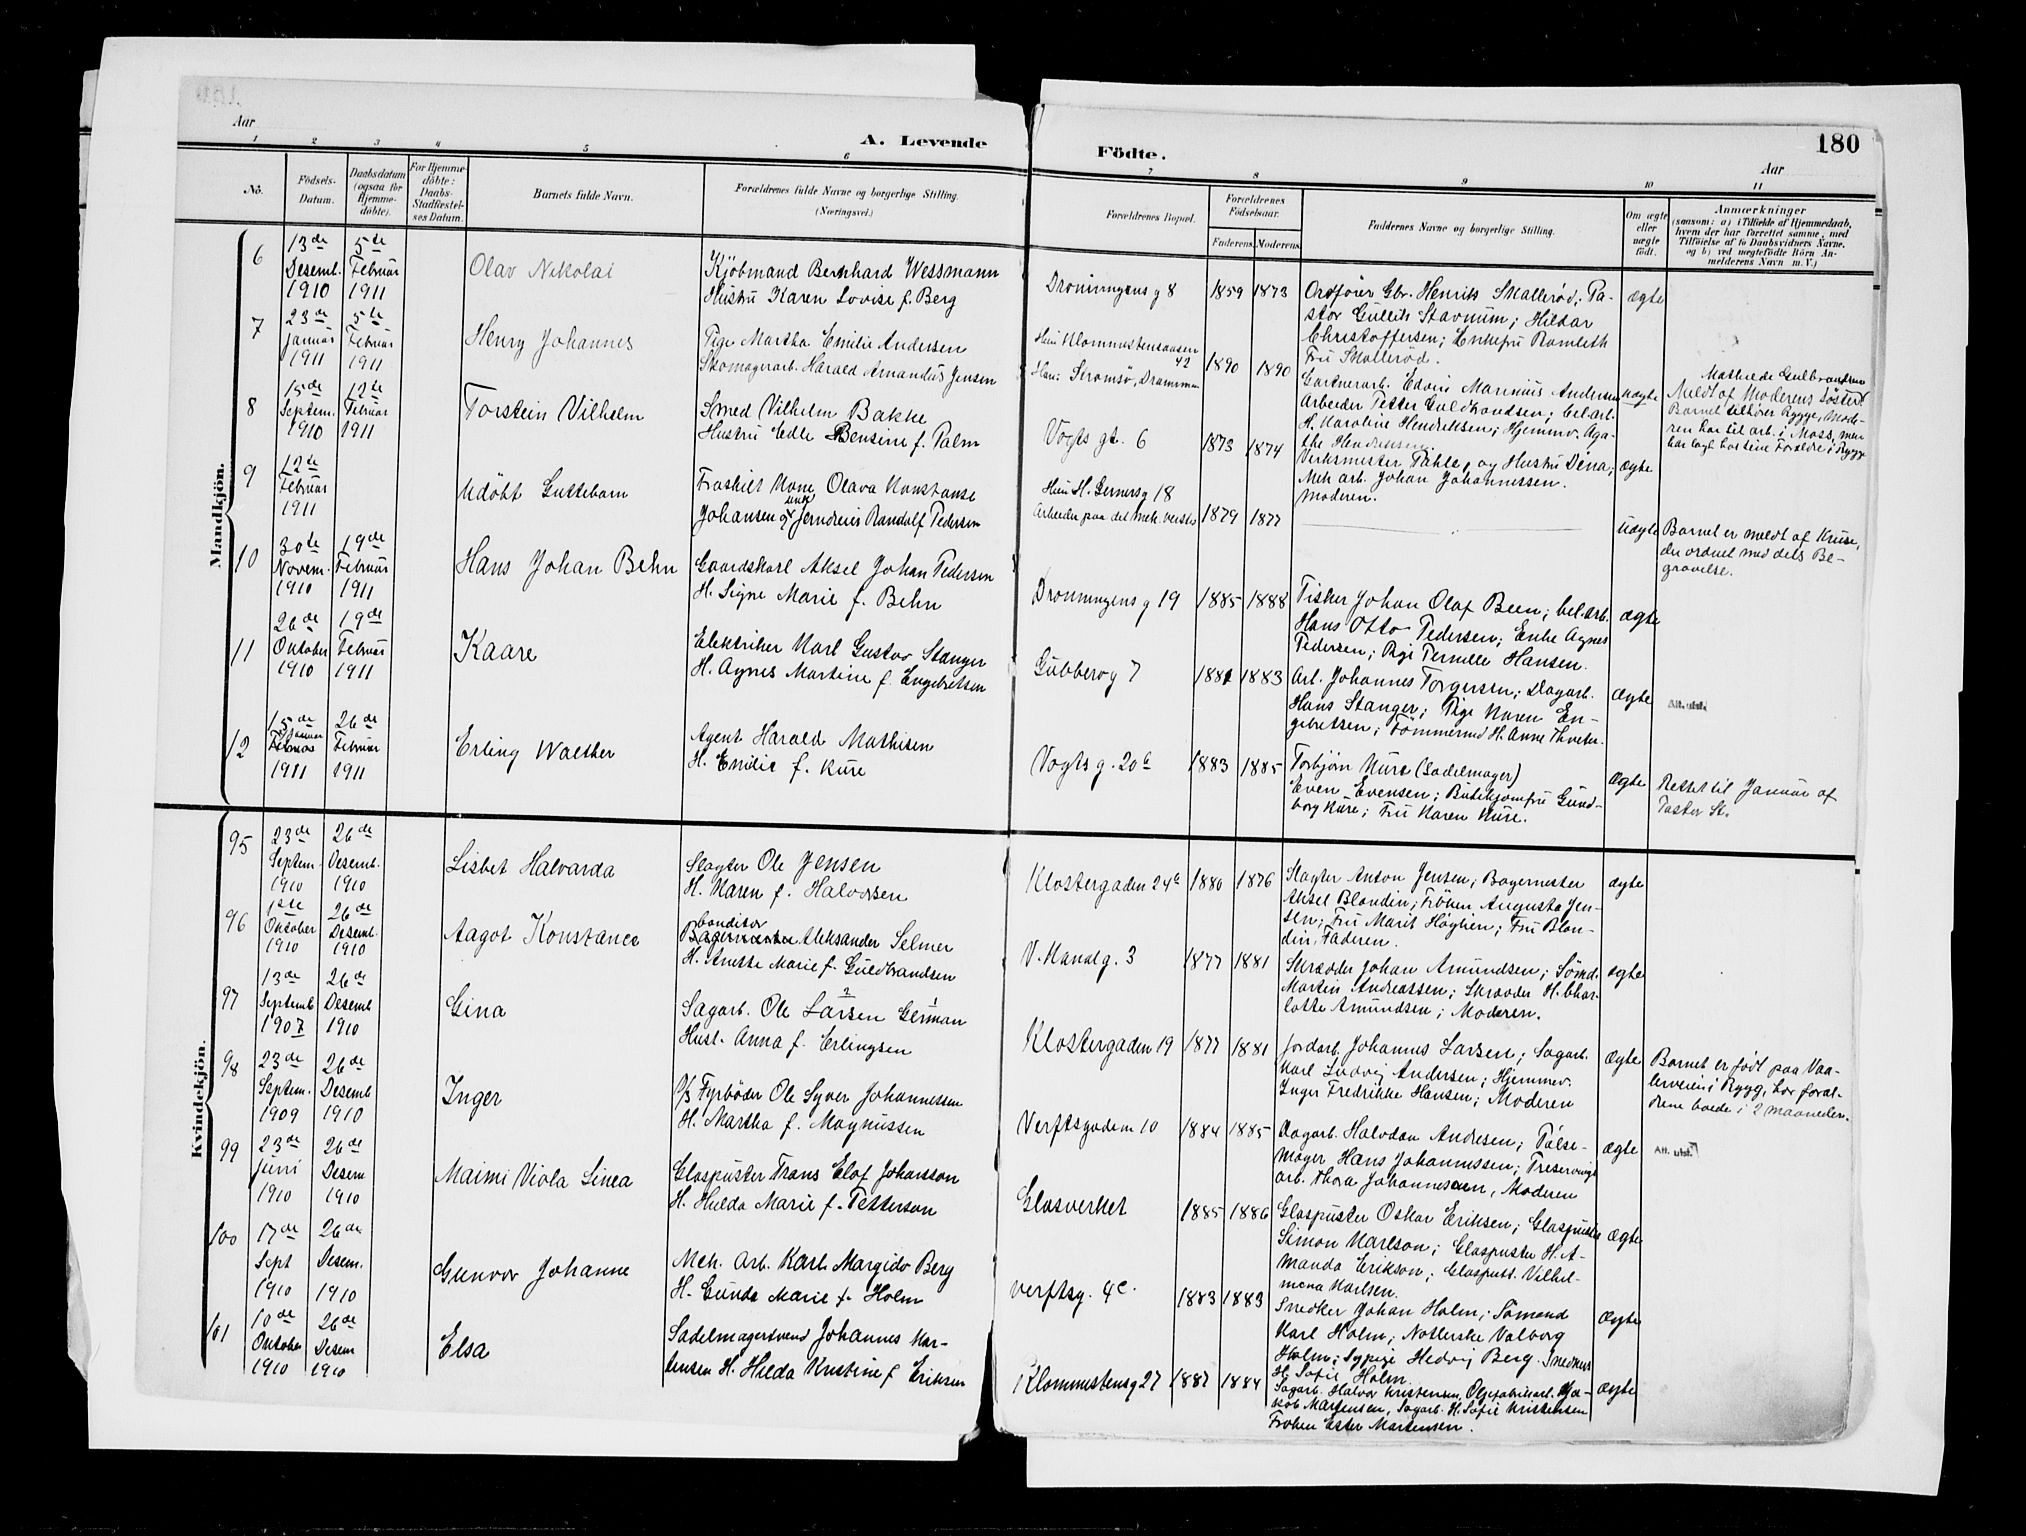 180
Aar
A. Levende Födte.
Aar
1 2 3 4 5 6 7 8 9 10 11
No.
Födsels-Datum.
Daabsdatum (ogsaa for Hjemmedöbte).
For Hjemmedöbte: Daabs-Stadfæstelses Datum.
Barnets fulde Navn.
Forældrenes fulde Navne og borgerlige Stilling. (Næringsvei.)
Forældrenes Bopæl.
Forældrenes Födselsaar.
Faderens. Moderens.
Faddernes Navne og borgerlige Stilling.
Om ægte eller uægte født.
Anmærkninger
(saasom: a) i Tilfælde af Hjemmedaab, hvem der har forrettet samme, med Tilföielse af to Daabsvidners Navne, og b) ved uegtefödte Börn Anmelderens Navn m. V.)
Mandkjön.
6
13de Desemb. 1910
5te Februar 1911
Olav Nikolai
Kjöbmand Bernhard Wessmann
Hustru Karen Lovise f. Berg
Dronningens g 8
1859 1873
Ordfører Gbr. Henrik Skallerød; Pa-
stor Gullik Stavnum; Hildar
Christoffersen; Enkefru Ramleth
Fru Skallerød.
ægte
7
23de Januar 1911
5te Februar 1911
Henry Johannes
Pige Martha Emilie Andersen
Skomagerarb. Harald Amandus Jensen
42
Han: Strømsø, Drammen
1890 1890
Gartnerarb. Edvin Marinius Andersen
Arbeider Petter Guldbrandsen; bel.arb.
H. Karoline Hendriksen; Hjemmv. Aga-
the Hendriksen.
uægte
Mathilde Gulbrandsen
Meldt af Moderens Søster.
Barnet tilhører Rygge, Mode-
ren har til arb. i Moss, men
har lagt hos sine Foraldre i Rygge
8
15de Septem. 1910
12te Februar 1911
Torstein Vilhelm
Smed Vilhelm Bakke
Hustru Edle Bensine f. Palm
Vogts gt. 6
1873 1874
Verksmester Pahle, og Hustru Dina;
Mek arb. Johan Johannessen.
Moderen.
ægte
9
12te Februar 1911
Udöbt Guttebarn
Fraskilt Kone Olava Konstanse
Johansen og unk Jerndreier Randolf Pedersen
Hun H. Gerners g 18
Arbeider paa det mek. versted
1879 1877
uægte
Barnet er meldt af Kruse,
der ordnet med dets Be-
gravelse.
10
30te Novem. 1910
19de Februar 1911
Hans Johan Behn
Gaardskarl Aksel Johan Pedersen
H. Signe Marie f. Behn
Dronningens g 19
1885 1888
Fisker Johan Olaf Been; bel.arb.
Hans Otto Pedersen; Enke Agnes
Pedersen; Pige Pernille Hansen.
ægte
11
26de Oktober 1910
19de Februar 1911
Kaare
Elektriker Karl Gustav Stanger
H. Agnes Martine f. Engebretsen
Gubberog 7
1881 1883
Arb. Johannes Torgersen; Dagarb.
Hans Stanger; Pige Karen En-
gebretsen; Tömmermd H. Anne Thveter.
ægte
Att. utst.
12
15de Januar Februar 1911
26de Februar 1911
Erling Walther
Agent Harald Mathisen
H. Emilie f. Kure
Vogts g. 20b
1883 1885
Torbjørn Kure (Sadelmager)
Even Evensen; Butikjomfru Gund-
borg Kure; Fru Karen Kure.
ægte
Rettet til Januar af
Pastor St.
Kvindekjön.
95
23de Septem. 1910
26de Desemb. 1910
Lisbet Halvarda
Slagter Ole Jensen
H. Karen f. Halvorsen
Klostergaden 24b
1880 1876
Slagter Anton Jensen; Bagermester
Aksel Blandin; Fröken Augusta Jen-
sen; Fru Marit Høghien; Fru Blan-
din; Faderen.
ægte
96
1ste Oktober 1910
26de Desemb. 1910
Aagot Konstance
Conditor
Bagermester Aleksander Selmer
H. Anette Marie f. Guldbrandsen
V. Kanalg. 3
1877 1881
Skrædder Johan Amundsen; Sömd.
Martin Andreassen; Skrædder H. Char-
lotte Amundsen; Moderen.
ægte
97
13de Septemb 1907
26de Desemb 1910
Gina
Sagarb. Ole Larsen German
2 1
Hust. Anna f. Erlingsen
Klostergaden 19
1877 1881
Jordarb. Johannes Larsen; Sagarb.
Karl Ludvig Andersen; Hjemmev.
Inger Fredrikke Hansen; Moderen
ægte
Barnet er født paa Vaa-
lerveien i Rygg, hor foræl-
drene boede i 2 maaneder.
98
23de Septem. 1909
26de Desemb 1910
Inger
P/S Fyrböder Ole Syver Johannessen
H. Martha f. Magnussen
Verftsgaden 10
1884 1885
Dagarb. Halvdan Andresen; Pölse-
mager Hans Johannessen; Preservings
arb. Thora Johannessen, Moderen
ægte
Att. utst.
99
23de Juni 1910
26de Desem 1910
Maimi Viola Linea
Glaspuster Frans Elof Johansson
H. Hulda Marie f. Petterson
Glasverket
1885 1886
Glaspuster Oskar Eriksen; Glaspuster
Simon Karlson; Glaspuster H. A-
manda Erikson; Glaspust. Vilhel-
mena Karlsen.
ægte
100
17de Sept 1910
26de Desem. 1910
Gunvor Johanne
Mek. Arb. Karl Margido Berg
H. Gunda Marie f. Holm
Verftsg. 4c.
1883 1883
Snedker Johan Holm; Sömand
Karl Holm; Notlerske Valborg
Holm; Sypige Hedvig Berg. Snedkers
H. Sofie Holm.
ægte
101
10de Oktober 1910
26de Desem 1910
Elsa
Sadelmagersvend Johannes Mar-
tensen H. Hilda Kristine f. Eriksen
Klommestensg 27
1887 1884
Sagarb. Halvor Kristensen, Oljefabrikarb. Ja-
kob Martensen, Sagarb. H. Sofie Kristensen
Froken Ester Martensen.
ægte